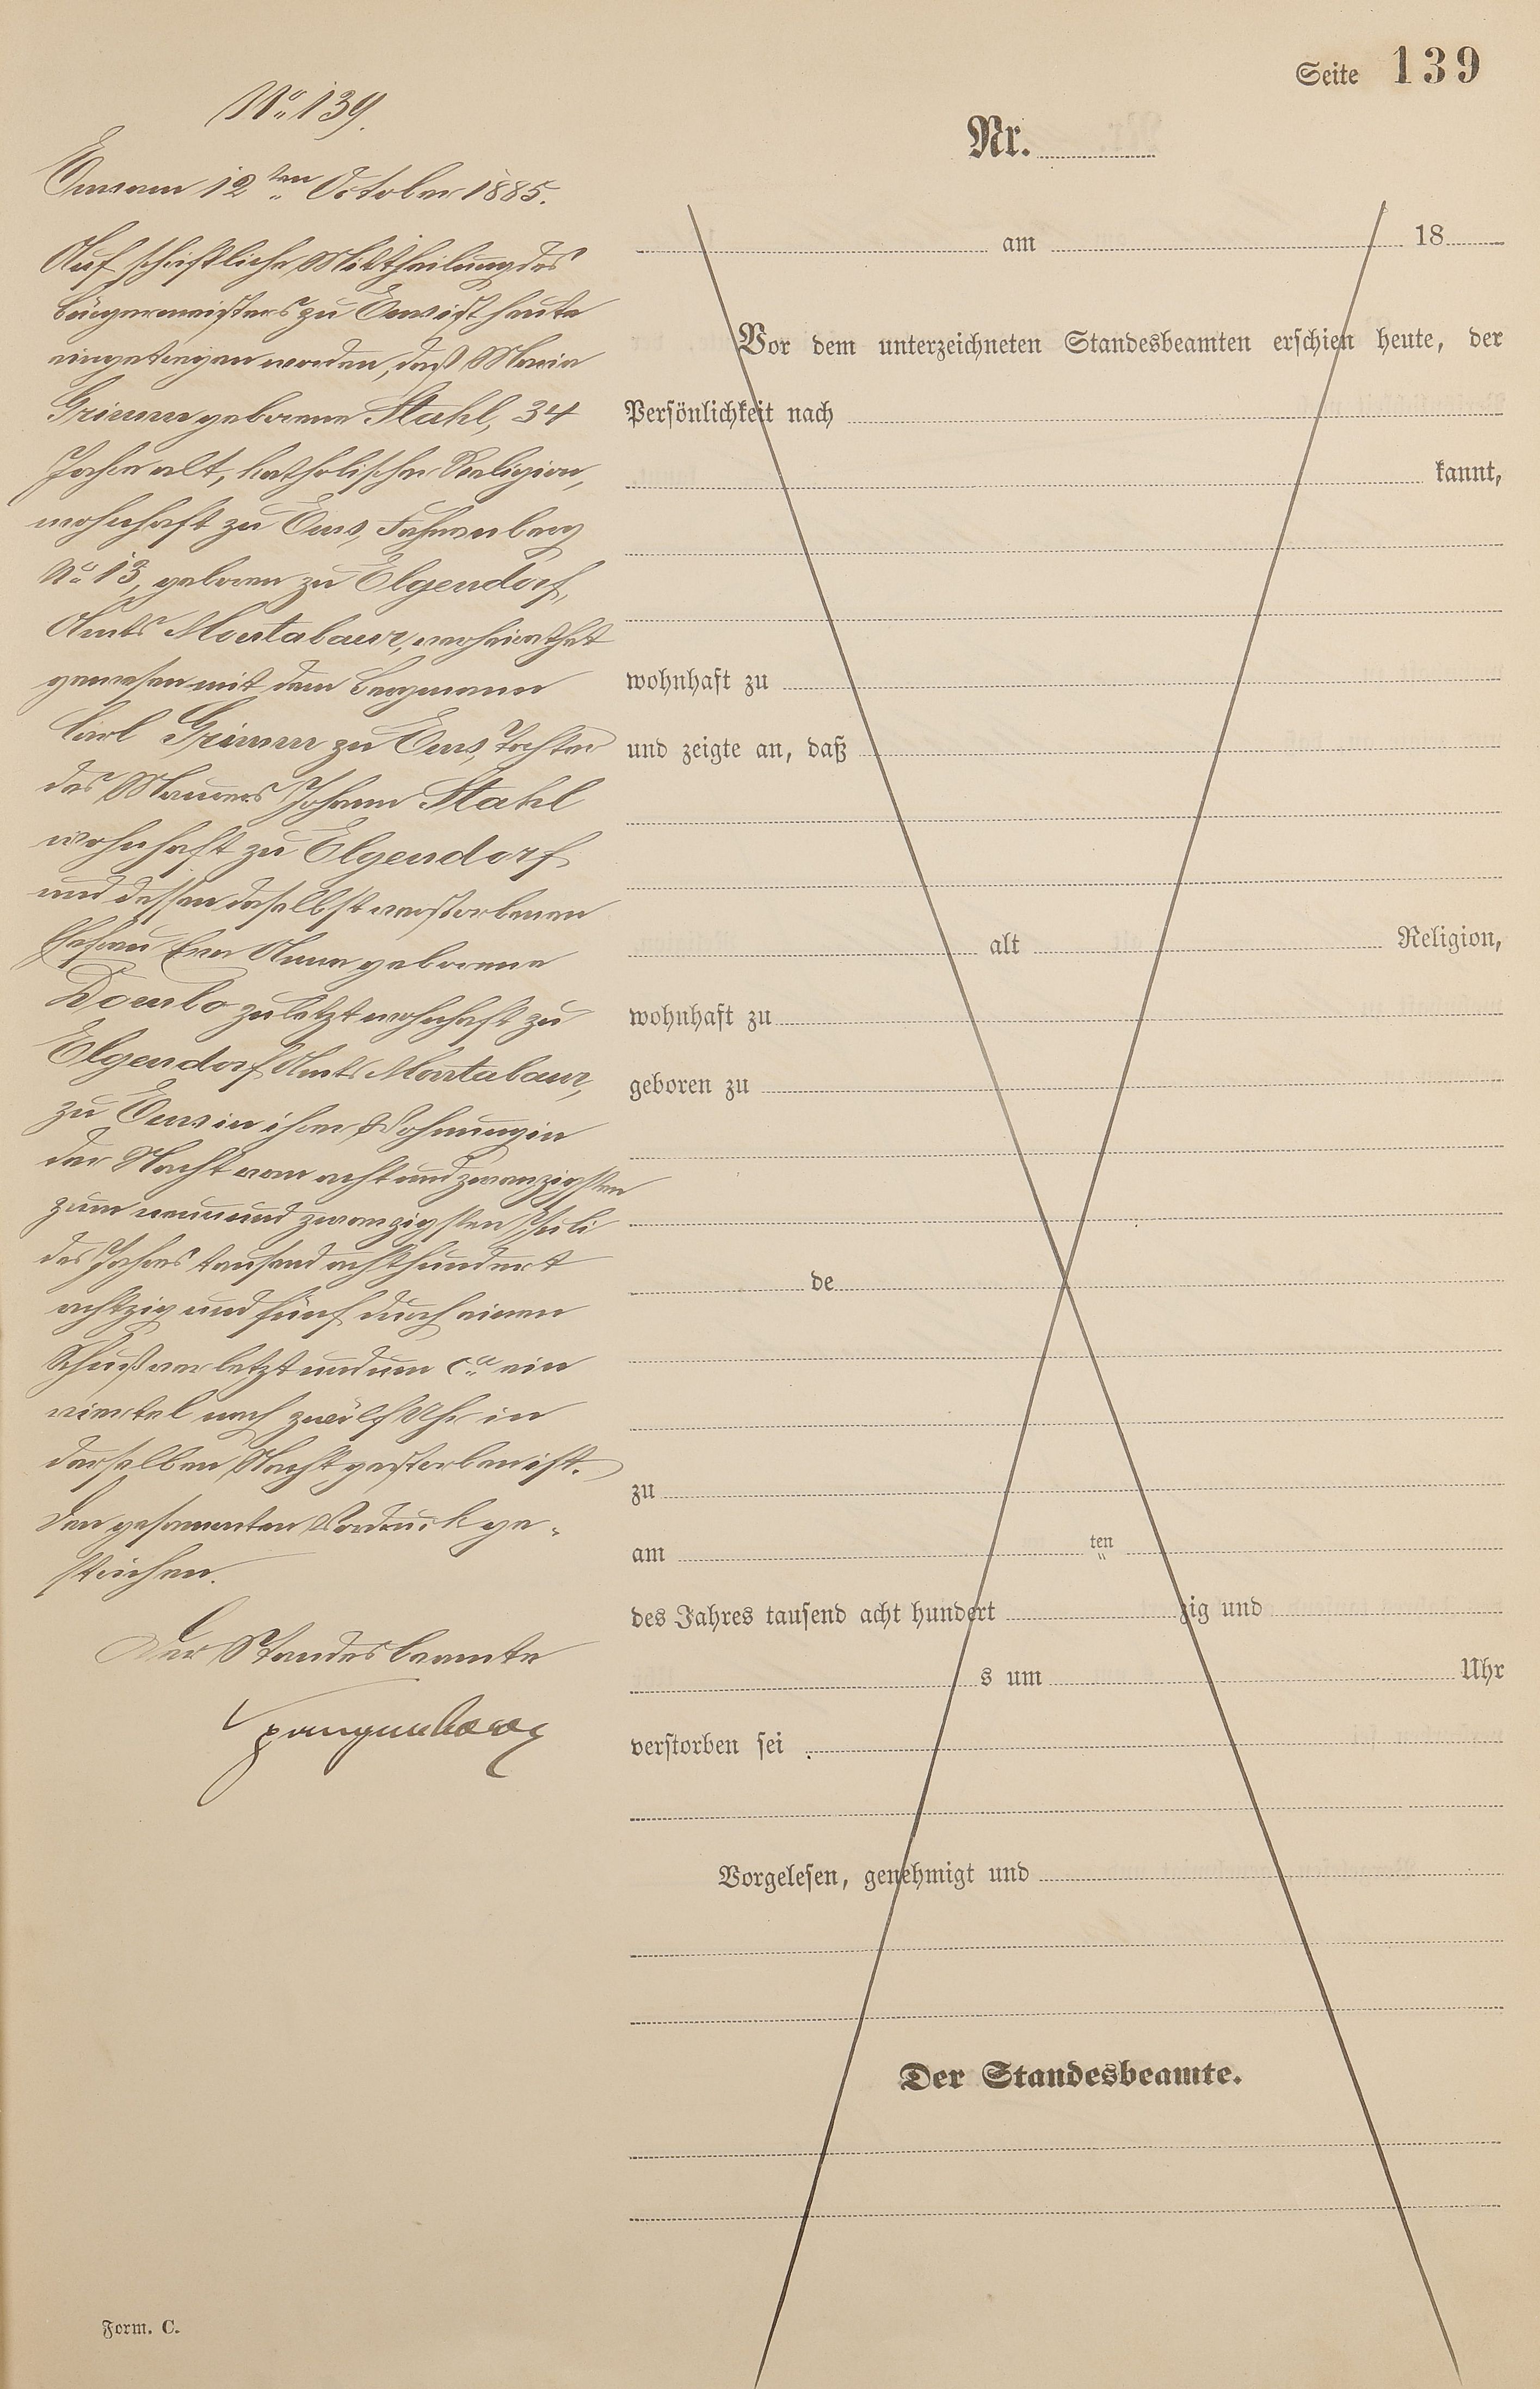 Seite 139
No. 139.
Ems am 12ten October 1885.
Auf schriftliche Mittheilung des
Bürgermeisters zu Ems ist heute
eingetragen worden, daß Maria
Grimm geborene Stahl, 34
Jahre alt, katholischer Religion,
wohnhaft zu Ems,
No. 13, geboren zu Elgendorf,
Amts Montabaur, verheirathet
gewesen mit dem Bergmann
Carl Grimm zu Ems, Tochter
des Maurers Johann Stahl
wohnhaft zu Elgendorf
und dessen daselbst verstorbenen
Ehefrau Eva Anna geborene
zuletzt wohnhaft zu
Elgendorf Amts Montabaur,
zu Ems in ihrer Wohnung in
der Nacht vom acht und zwanzigsten
zum neun und zwanzigsten Juli
des Jahres tausend achthundert
achtzig und fünf durch einen
Schuß verletzt und um ca ein
viertel nach zwölf Uhr in
derselben Nacht gestorben ist.
Den gesammten Vordruck ge-
strichen.
Der Standesbeamte
Spangenberg
Form. C.
Nr.
am 18
Vor dem unterzeichneten Standesbeamten erschien heute, der
Persönlichkeit nach
kannt,
wohnhaft zu
und zeigte an, daß
alt Religion,
wohnhaft zu
geboren zu
de
zu
am ten
des Jahres tausend acht hundert zig und
s um Uhr
verstorben sei
Vorgelesen, genehmigt und
Der Standesbeamte.